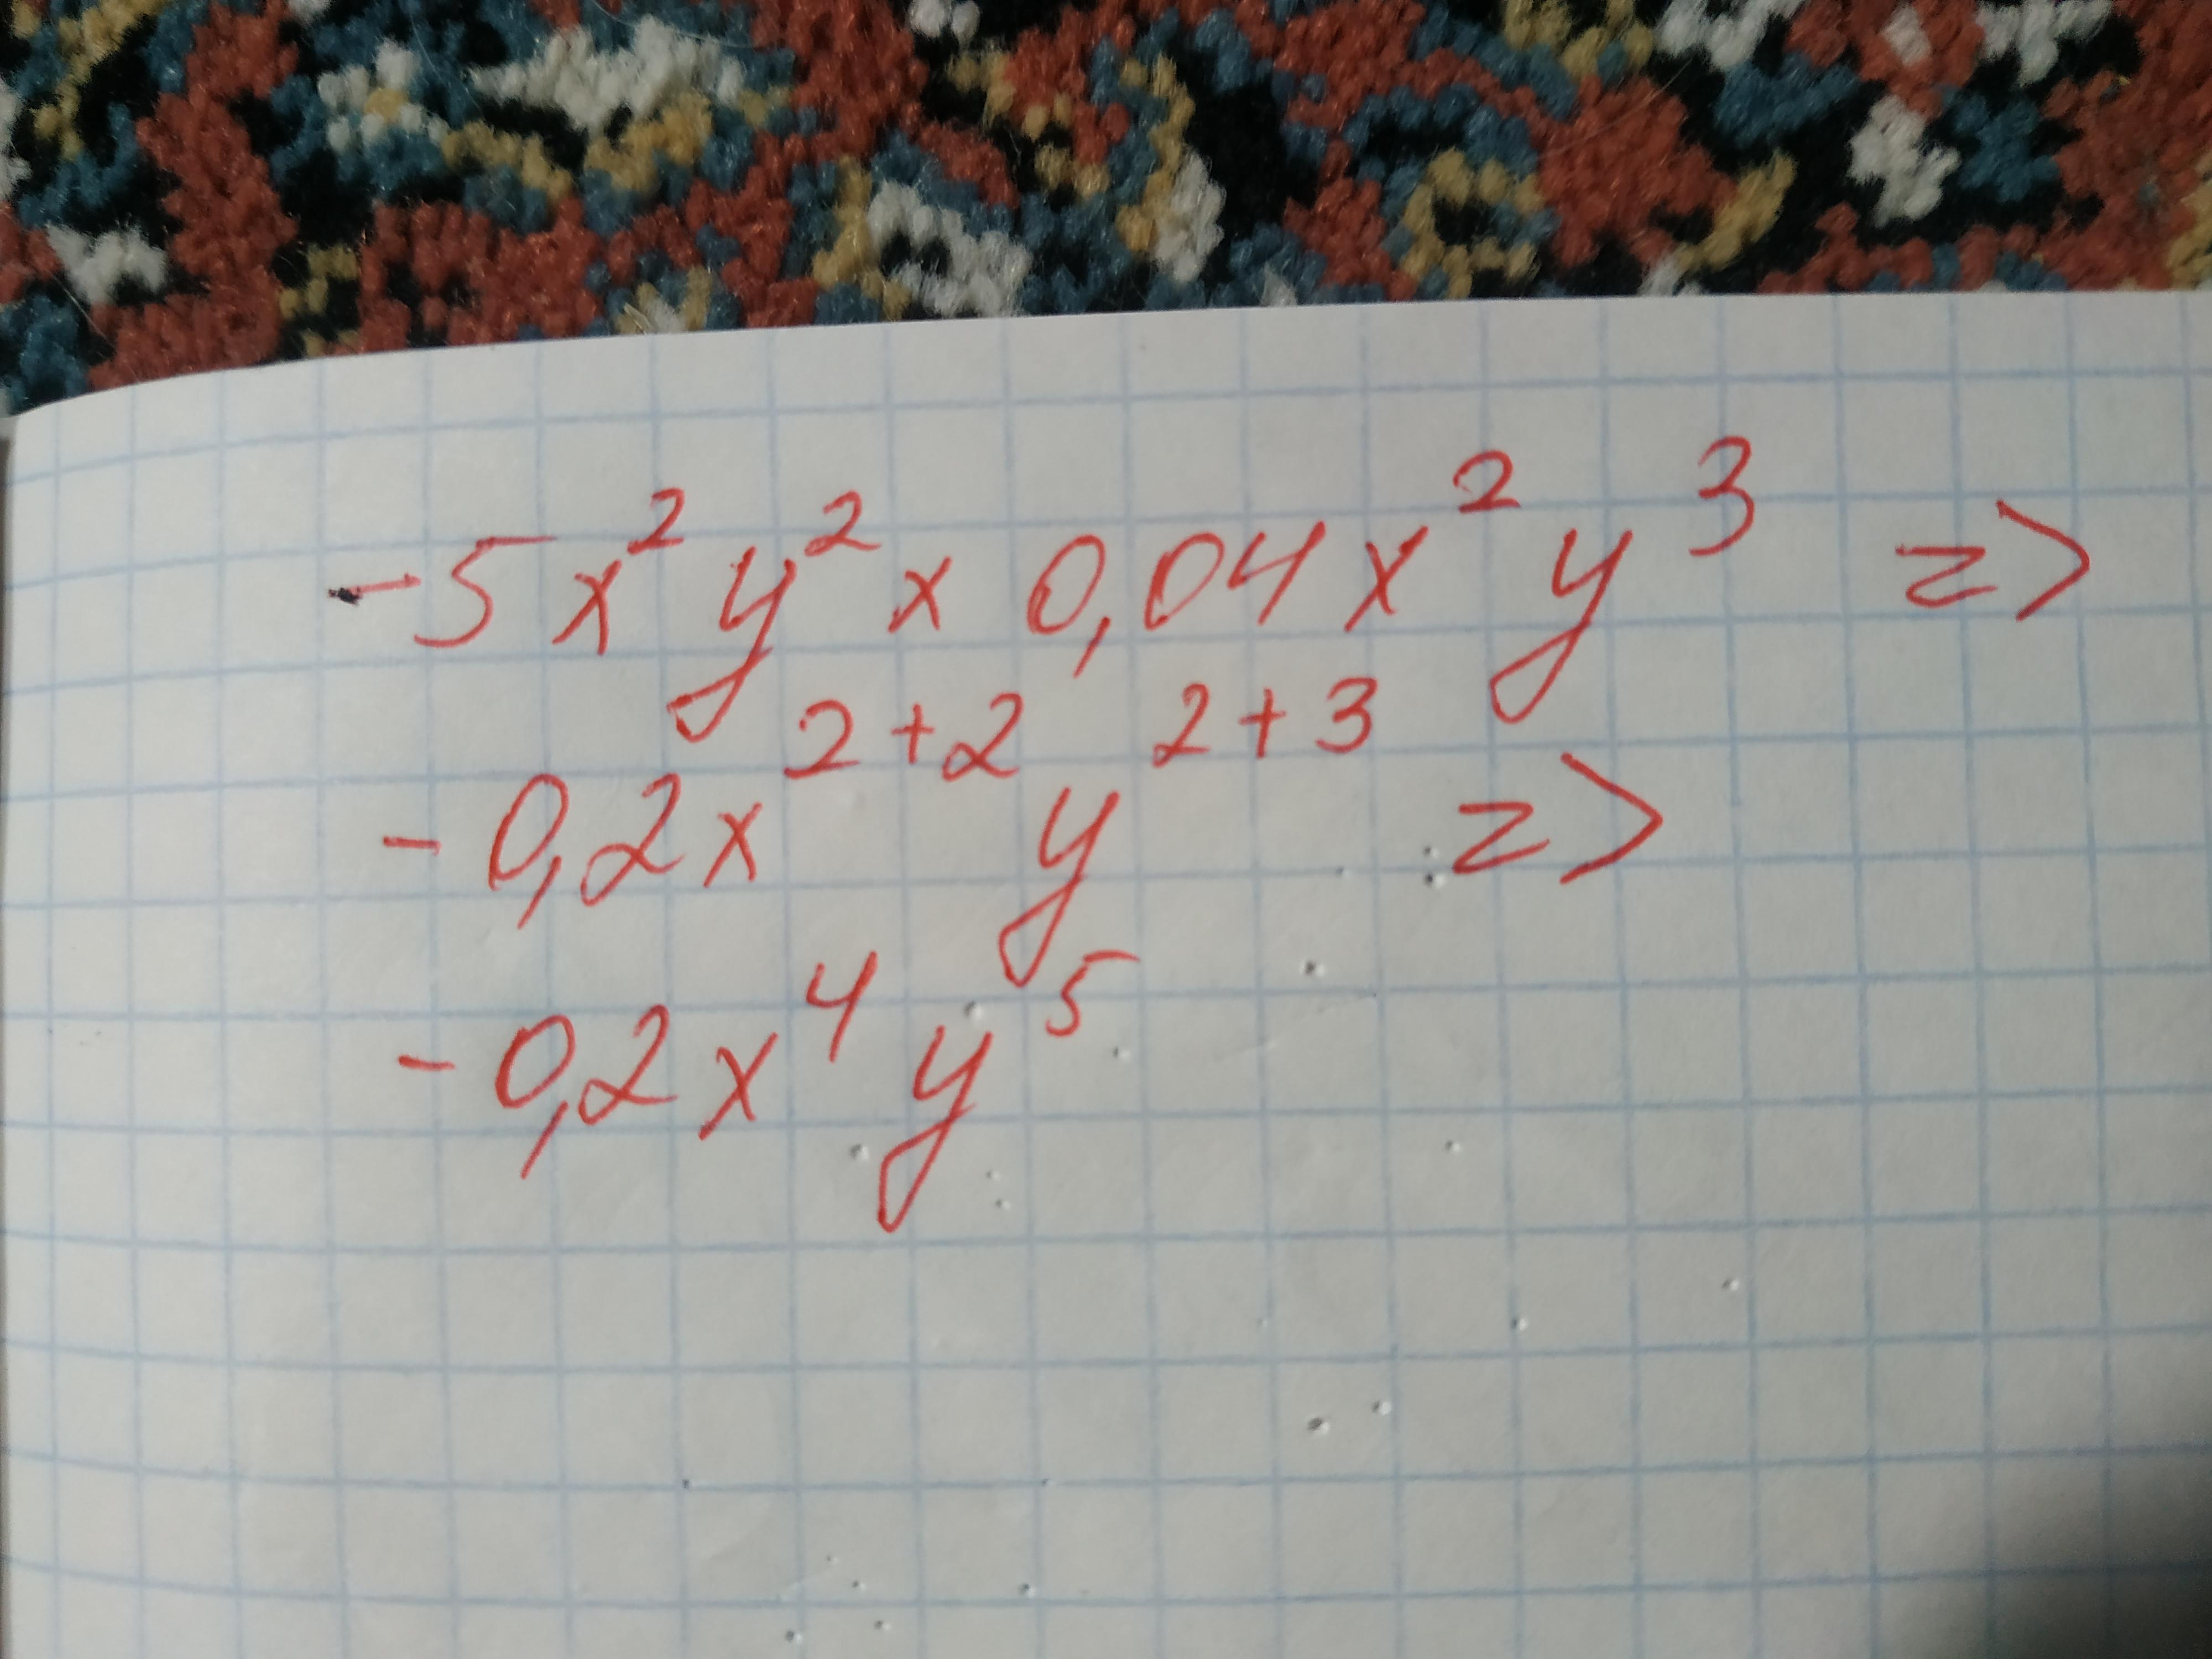 -5x²y² x 0,04x²y³ =>
-0,2x²⁺²y²⁺³ =>
-0,2x⁴y⁵